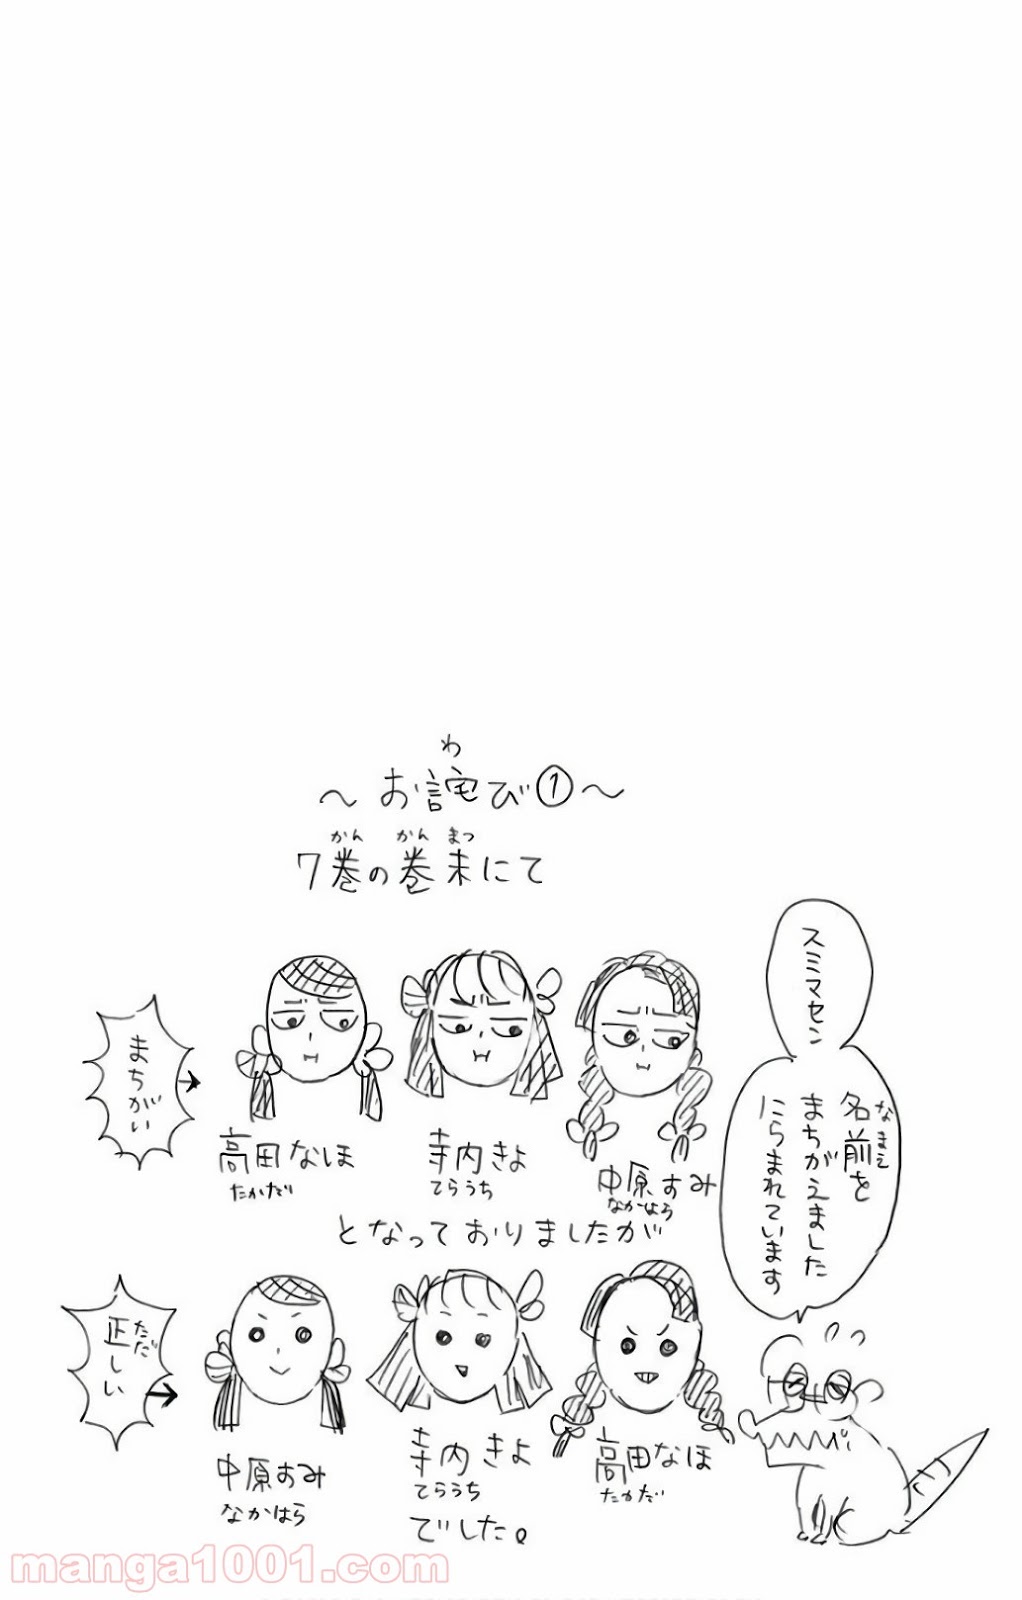 ～お詫び①～
わ
7巻の巻末にて
かん かん まつ
まちがい
高田なほ
たかだ
寺内きよ
てらうち
中原すみ
なかはら
となっておりましたが
スミマセン
名前を
なまえ
まちがえました
にらまれています
正しい
ただ
中原すみ
なかはら
寺内きよ
てらうち
高田なほ
たかだ
でした。
manga1001.com